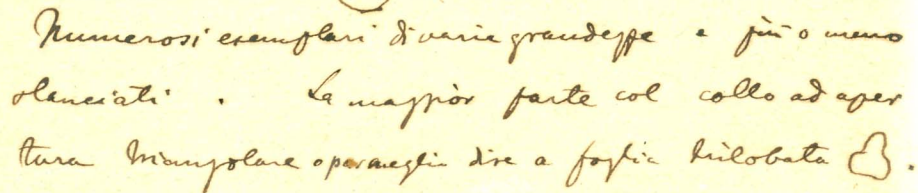 Numerosi esemplari di varie grandezze e più o meno
slanciati. La maggior parte col collo ad aper
tura triangolare o per meglio dire a foglia trilobata.